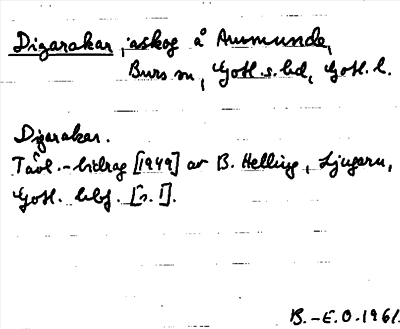 Digarakar, åskog å Ammunde,
Burs sn, Gotl. s. hd, Gotl. l.
Digarakar.
Tävl.-bidrag [1949] av B. Helling, Ljugarn,
Gotl. [s. 1].
B.-E.O. 1961.